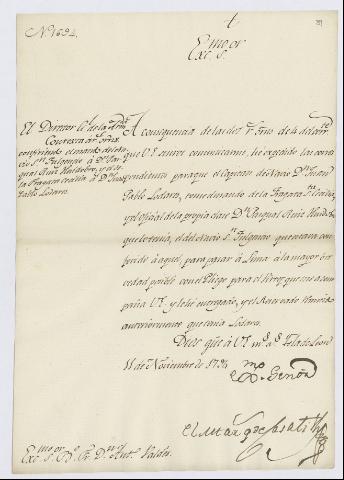 Nº 1694.
Exc.mo S.or
El Director G.l de la Arm.da
Contexta
confiriendo el mando del na-
vio S.n Fulgencio a D.n Pas-
qual Ruiz Huidobro, y el de
la Fragata Cecilia a D.n Juan
Pablo Lodares.
A consequencia de las de 4 del corr.te
que V.E. se sirve comunicarme, he expedido las corres-
pondientes para que el Capitan de Navio D.n Juan
Pablo Lodares, tome el mando de la Fragata S.ta Cecilia,
y el oficial de la propia clase D.n Pasqual Ruiz Huidobro
que lo tenia, el del navio S.n Fulgencio que estava con-
ferido à aquel, para pasar à Lima à la mayor bre-
vedad posible con el Pliego para el Virrey que me acom-
paña V.E. y le he entregado, y el Reservado
anteriormente que tenia Lodares.
Dios gūe à V.E. m.s a.s Isla de Leon
11 de Noviembre de 1794
Exc.mo Señor
El Marq.s de Casa Tilly
Exc.mo S.or B.o Fr. D.n Ant.o Valdes.